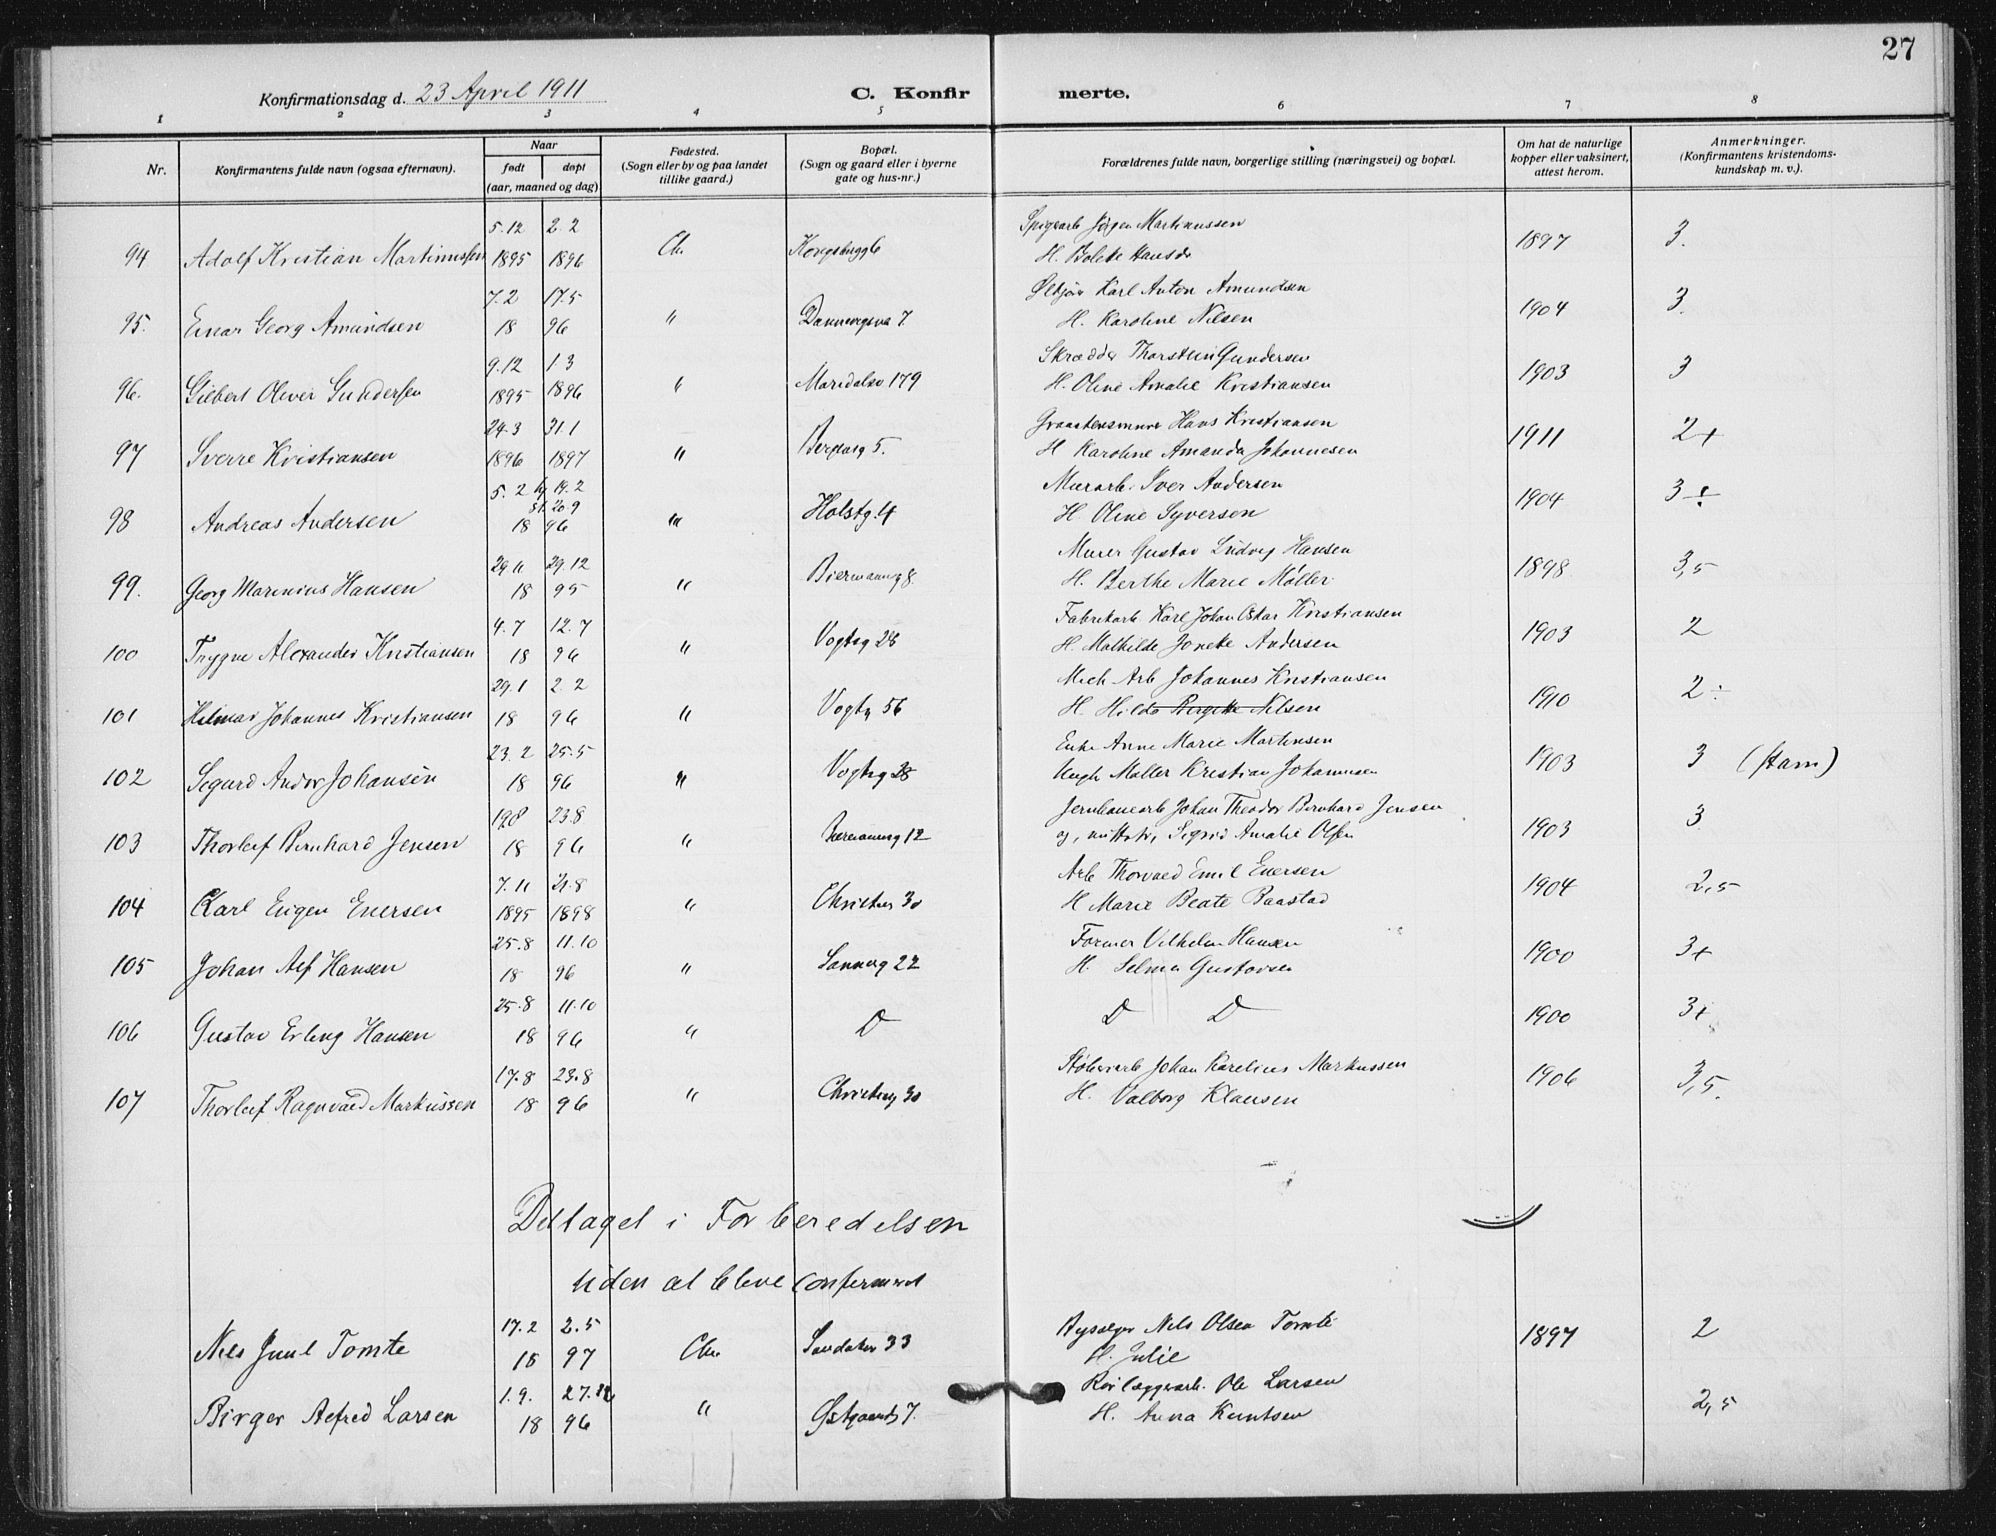 27
Konfirmationsdag d. 23 April 1911
C. Konfirmerte.
1 2 3 4 5 6 7 8
Nr.
Konfirmantens fulde navn (ogsaa efternavn).
Naar
født døpt
(aar, maaned og dag)
Fødested.
(Sogn eller by og paa landet
tillike gaard.)
Bopæl.
(Sogn og gaard eller i byerne
gate og hus-nr.)
Forældrenes fulde navn, borgerlige stilling (næringsvei) og bopæl.
Om hat de naturlige
kopper eller vaksinert,
attest herom.
Anmerkninger.
(Konfirmantens kristendoms-
kundskap m. v.).
5.12 2.2 Jørgen Martinussen
94 Adolf Kristian Martinussen 1895 1896 Chr H. Bolette Hansdr 1897 3.
7.2 17.5 Karl Anton Amundsen
95. Einar Georg Amundsen 18 96 " 7 H. Karoline Nilsen 1904 3.
9.12 1.3 Skrædder Thorstein Gundersen
96. Gilbert Oliver Gundersen 1895 1896 " Maridalsv 179 H. Oline Amalie Kristiansen 1903 3
24.3 31.1 Hans Kristiansen
97 Sverre Kristiansen 1896 1897 " 5. H Karoline Amanda Johannesen 1911 2+
5.2 14.2 Murarb. Iver Andersen
20.9
98 Andreas Andersen 18 96 " Holstg. 4 H. Oline Syversen 1904 3÷
29.11 29.12 Murer Gustav Ludvig Hansen
99. Georg Marinius Hansen 18 95 " Biermannsg 8. H. Berthe Marie Møller 1898 3,5
4.7 12.7 Fabrikarb Karl Johan Oskar Kristiansen
100 Trygve Alexander Kristiansen 18 96 " Vogtsg 28 H. Mathilde Andersen 1903 2
29.1 2.2 Mek Arb Johannes Kristiansen
101 Hilmar Johannes Kristiansen 18 96 " Vogtsg 56 H. Hilda Birgitte Nilsen 1910 2÷
23.2 25.5 Enke Anne Marie Martinsen
102 Sigurd Andor Johansen 18 96 " Vogtsg 38 Møller Kristian Johannesen 1903 3 (Stam)
19.8 23.8 Jernbanearb Johan Theodor Bernhard Jensen
103 Thorleif Bernhard Jensen 18 96 " 12 Sigrid Amalie Olsen 1903 3
7.11 21.8 Arb Thorvald Emil Enersen
104 Karl Eugen Enersen 1895 1898 " 30 H Marie Beate Baastad 1904 2,5
25.8 11.10 Former Vilhelm Hansen
105 Johan Alf Hansen 18 96 " Sannerg 22 H. Selma Gustavsen 1900 3+
25.8 11.10
106 Gustav Erling Hansen 18 96 " D D D 1900 3+
17.8 23.8 Johan Karelius Markussen
107 Thorleif Ragnvald Markussen 18 96 " 30 H. Valborg Klausen 1906 3,5.
Deltaget i Forberedelsen
uden at bleve confirmeret
17.2 2.5 Nils Olsen Tomte
Nils Juul Tomte 18 97 Chr Sandakerv 33 H. Julie 1897 2
1.9. 27.12 Rørlæggerarb. Ole Larsen
Birger Alfred Larsen 18 96 " Østgaardsg 7. H. Anna Knutsen 2,5